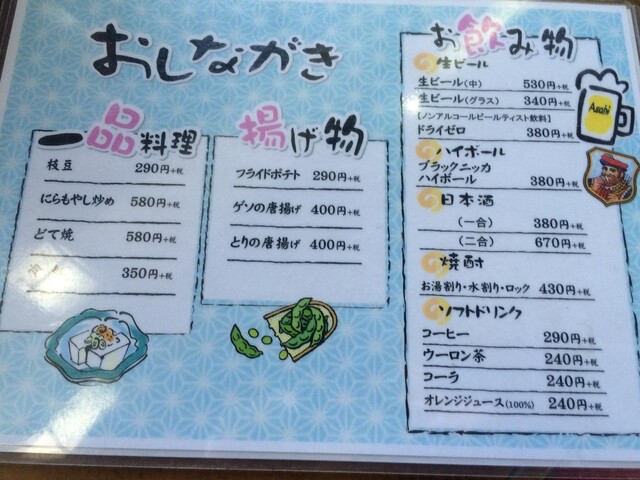 おしながき
一品料理
枝豆 290円+税
にらもやし炒め 580円+税
どて焼 580円+税
冷 350円+税
揚げ物
フライドポテト 290円+税
ゲソの唐揚げ 400円+税
とりの唐揚げ 400円+税
お飲み物
生ビール
生ビール(中) 530円+税
生ビール(グラス) 340円+税
[ノンアルコールビールテイスト飲料]
ドライゼロ 380円+税
Asahi
ハイボール
ブラックニッカ
ハイボール 380円+税
日本酒
(一合) 380円+税
(二合) 670円+税
焼酎
お湯割り・水割り・ロック 430円+税
ソフトドリンク
コーヒー 290円+税
ウーロン茶 240円+税
コーラ 240円+税
オレンジジュース(100%) 240円+税